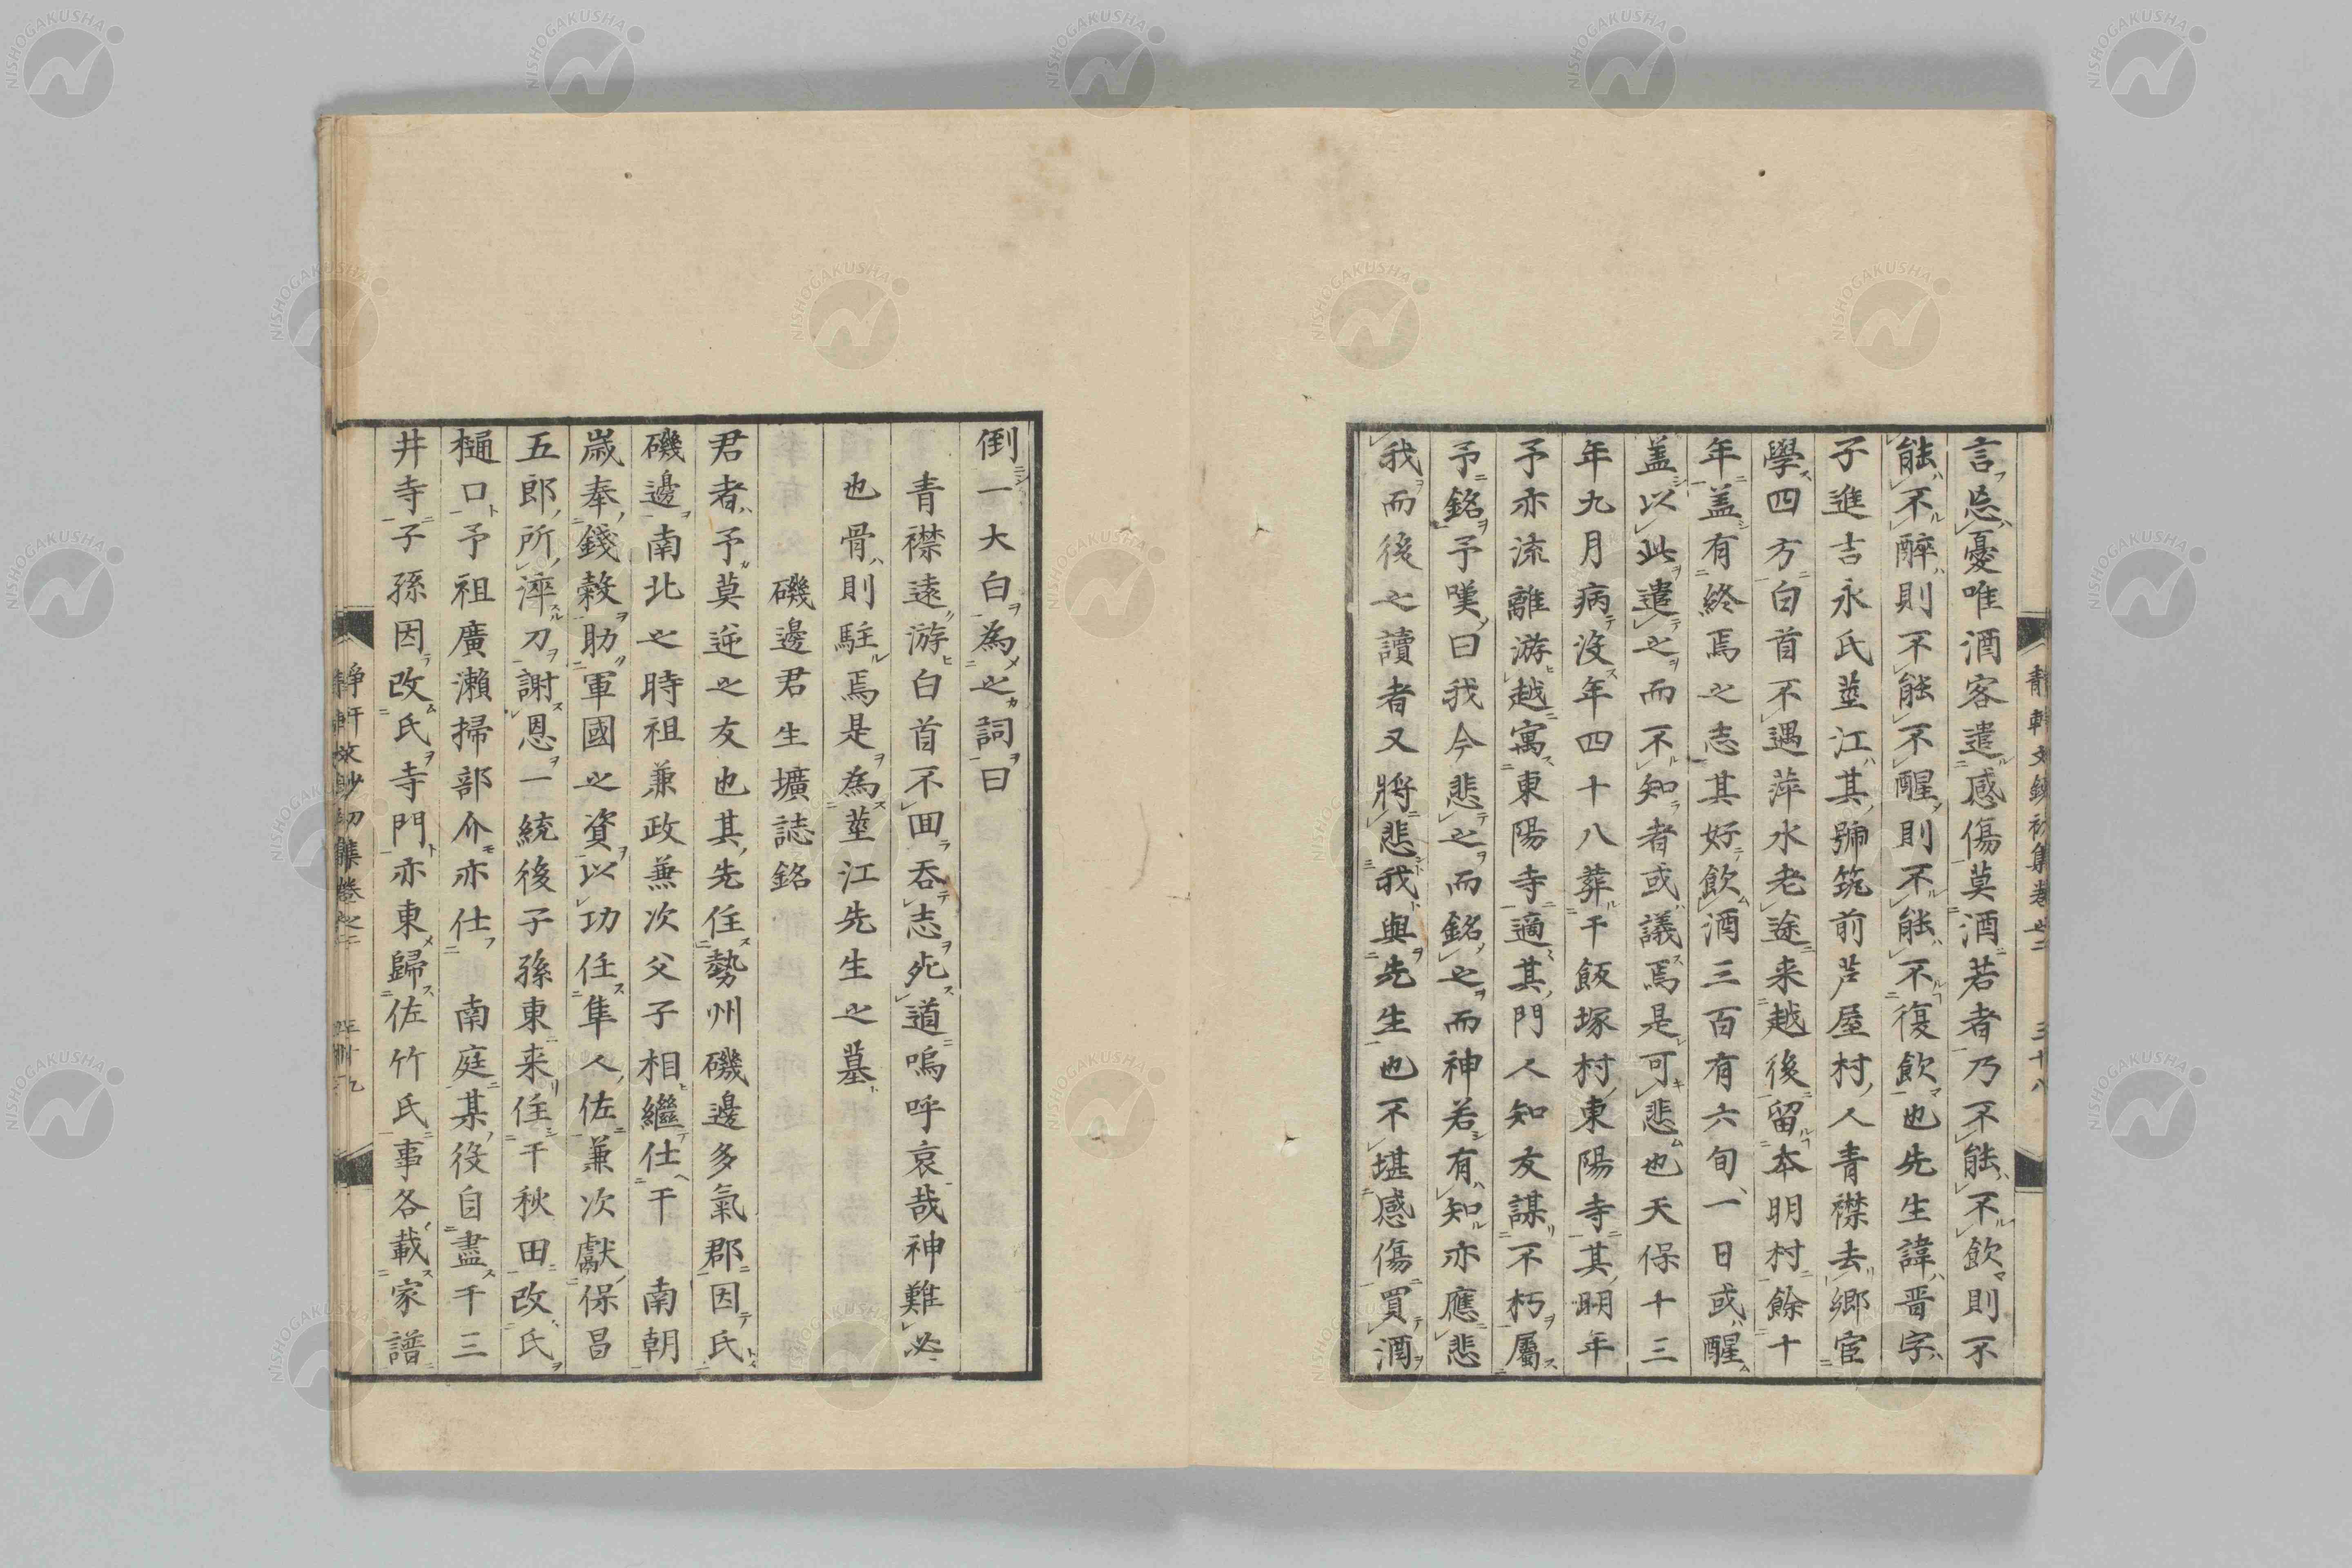 言忘憂唯酒客遣感傷莫酒若者乃不能不飲則不
能不醉則不能不醒則不能不復飲也先生諱晋字
子進吉永氏茎江其號筑前芦屋村人青襟去鄉宦
學四方白首不遇萍水老途来越後留本明村餘十
年盖有終焉之志其好飲酒三百有六旬一日或醒
盖以此遣之而不知者或議焉是可悲也天保十三
年九月病沒年四十八葬于飯塚村東陽寺其明年
予亦流離游越寓東陽寺適其門人知友謀不朽屬
予銘予嘆曰我今悲之而銘之而神若有知亦應悲
我而後之讀者又將悲我與先生也不堪感傷買酒
靜軒文鈔初集卷之二 三十八
倒一大白為之詞曰
青襟遠游白首不回吞志死道嗚呼哀哉神難必
也骨則駐焉是為茎江先生之墓
磯邊君生壙誌銘
君者予莫逆之友也其先住勢州磯邊多氣郡因氏
磯邊南北之時祖兼政兼次父子相繼仕于 南朝
歲奉錢穀助軍國之資以功任隼人佐兼次獻保昌
五郎所淬刀謝恩一統後子孫東来住于秋田改氏
樋口予祖廣瀨掃部介亦仕 南庭某役自盡于三
井寺子孫因改氏寺門亦東歸佐竹氏事各載家譜
靜軒文鈔初集卷之二